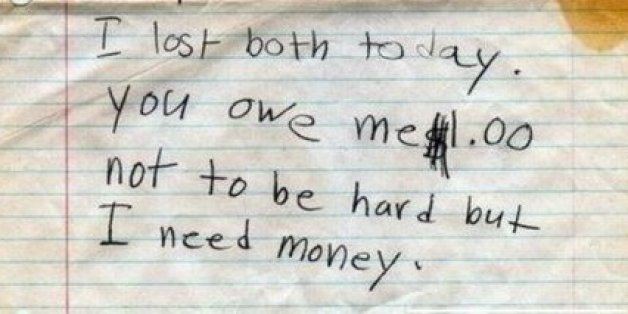 I lost both today.
you owe me $1.00
not to be hard but
I need money.